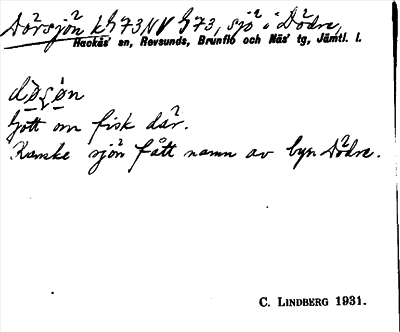 Dörsjön kG73NV G73, sjö i Dödre,
Hackås' sn, Revsunds, Brunflo och Näs' tg, Jämtl. l.
dø̱şø̱n
Gott om fisk där.
Kanske sjön fått namn av byn Dödre.
C. LINDBERG 1931.